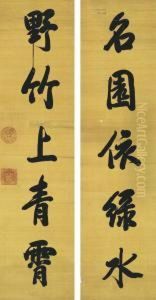 名園依綠水
野竹上青霄